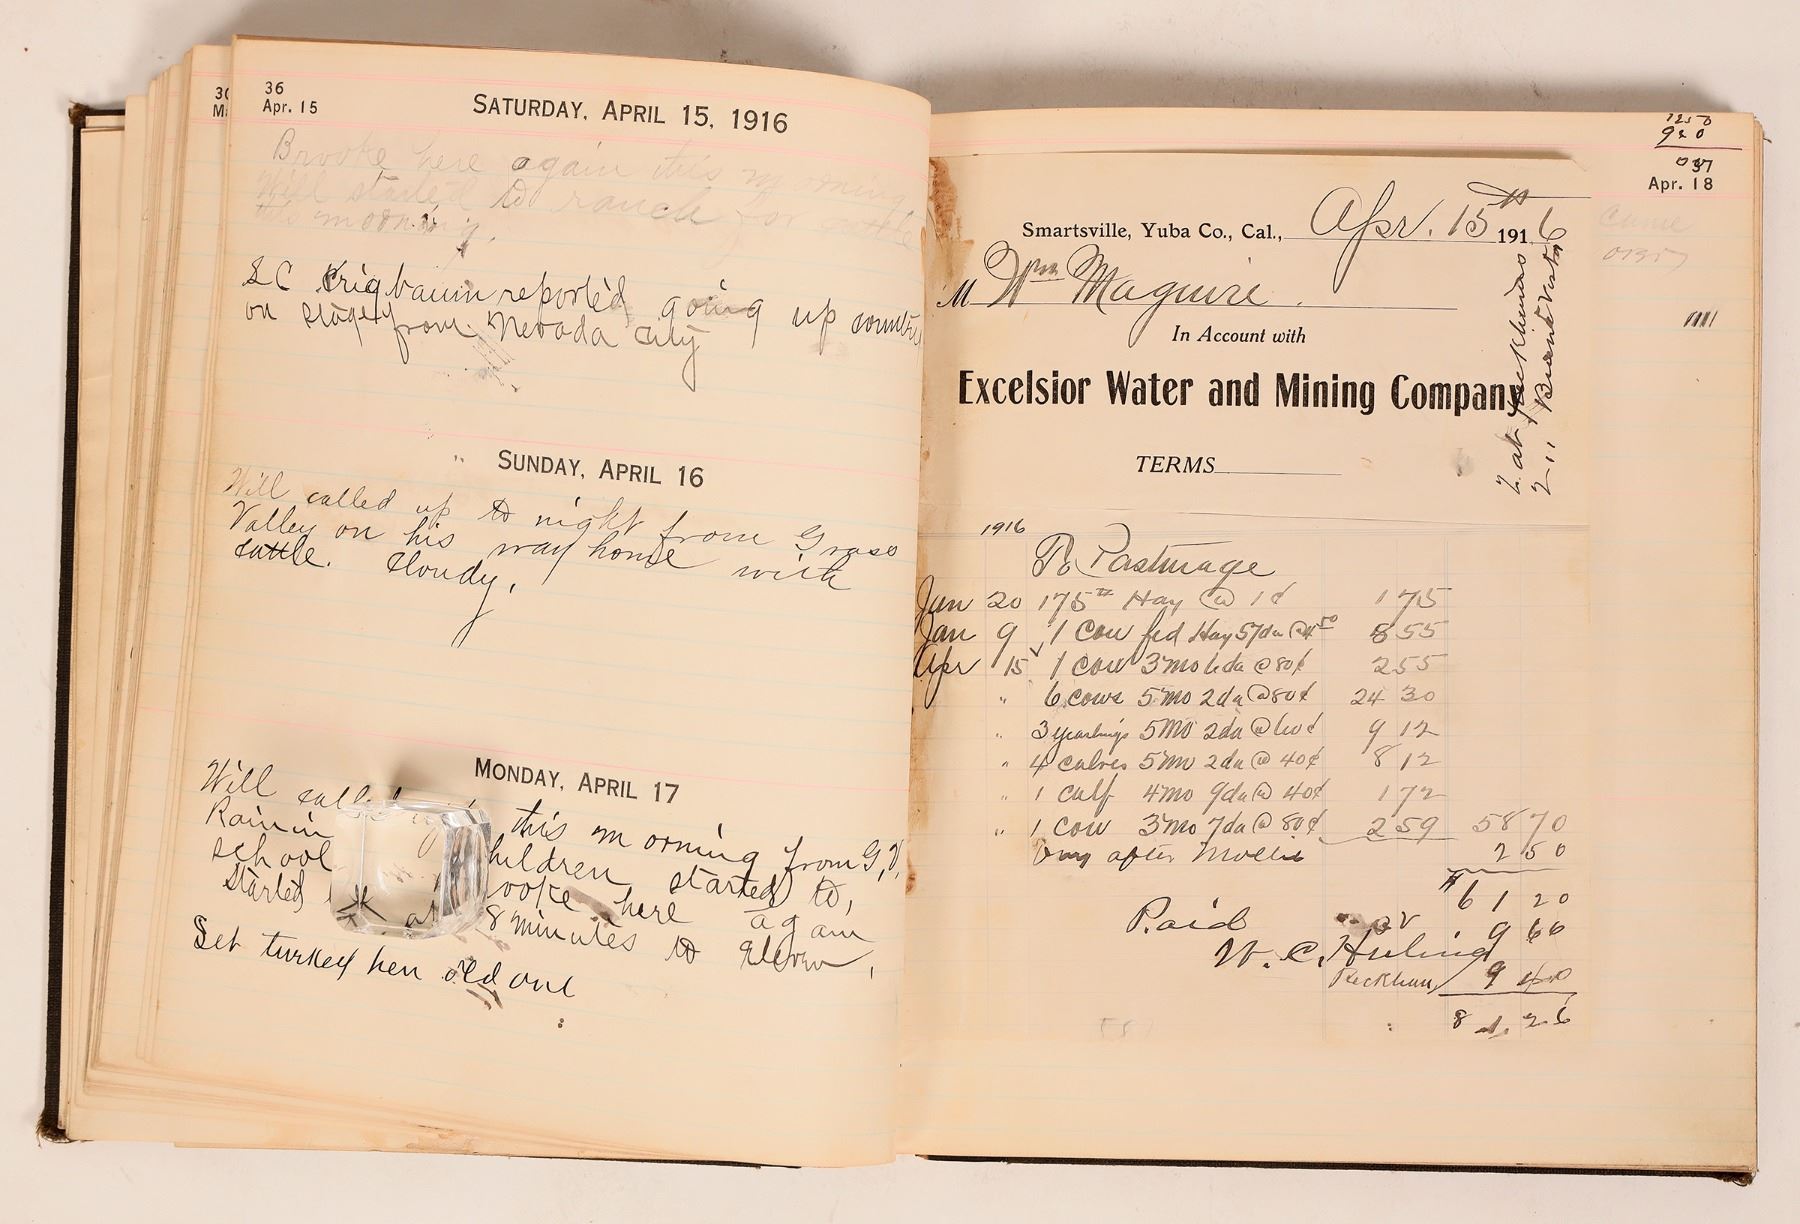 36
Apr. 15
SATURDAY, APRIL 15, 1916
Brooke here again this morning
Will started to ranch for cattle
this morning.
LC Krigbaum reported going up country
on stage from Nevada City
SUNDAY, APRIL 16
Will called up to night from Grass
Valley on his way home with
cattle. Cloudy.
MONDAY, APRIL 17
Will this morning from G,V.
Rain in
school children started to,
started here again
at 8 minutes to eleven.
Set turkey hen old one
30
1250
920
Apr. 18
came
Smartsville, Yuba Co., Cal., Apr. 15th 1916
M Wm Maguire.
In Account with
Excelsior Water and Mining Company
TERMS
2 at
2 " Buena Vista
1916
To Pasturage
Jan 20 175# Hay @ 1¢ 1 75
Jan 9 1 Cow fed Hay 57da @ 4 50 8 55
Apr 15 1 cow 3mo 6da @ 80¢ 2 55
" 6 cows 5mo 2da @ 80¢ 24 30
" 3 yearlings 5mo 2da @ 60¢ 9 12
" 4 calves 5mo 2da @ 40¢ 8 12
" 1 calf 4mo 9da @ 40¢ 1 72
" 1 cow 3mo 7da @ 80¢ 2 59 58 70
after Mollie 2 50
$61 20
Paid 9 66
W. C. Huling
Peckham 9 40
8 26